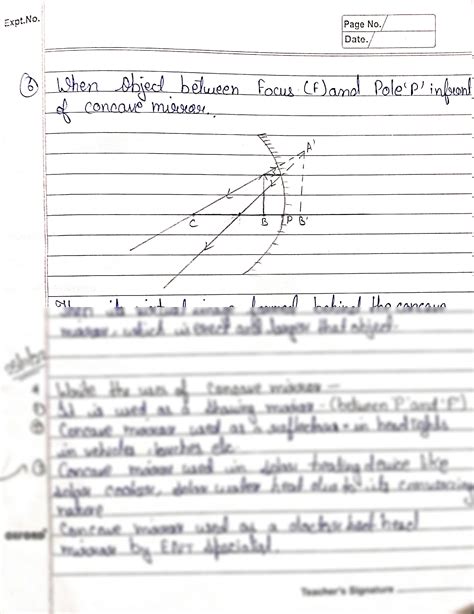 Expt.No.
Page No.
Date.
(6) When Object between Focus (F) and Pole 'P' infront
of concave mirror.
A'
C B P B'
Then its virtual image formed behind the concave
mirror, which is erect and larger that object.
Write the uses of Concave mirror -
It is used as a shaving mirror - (between P and F)
Concave mirror used as a reflectors in head lights
in vehicles, torches etc.
Concave mirror used in solar heating device like
solar cooker, solar water heat due to its converging
nature
Concave mirror used as a doctor head
mirror by ENT specialist.
Teacher's Signature